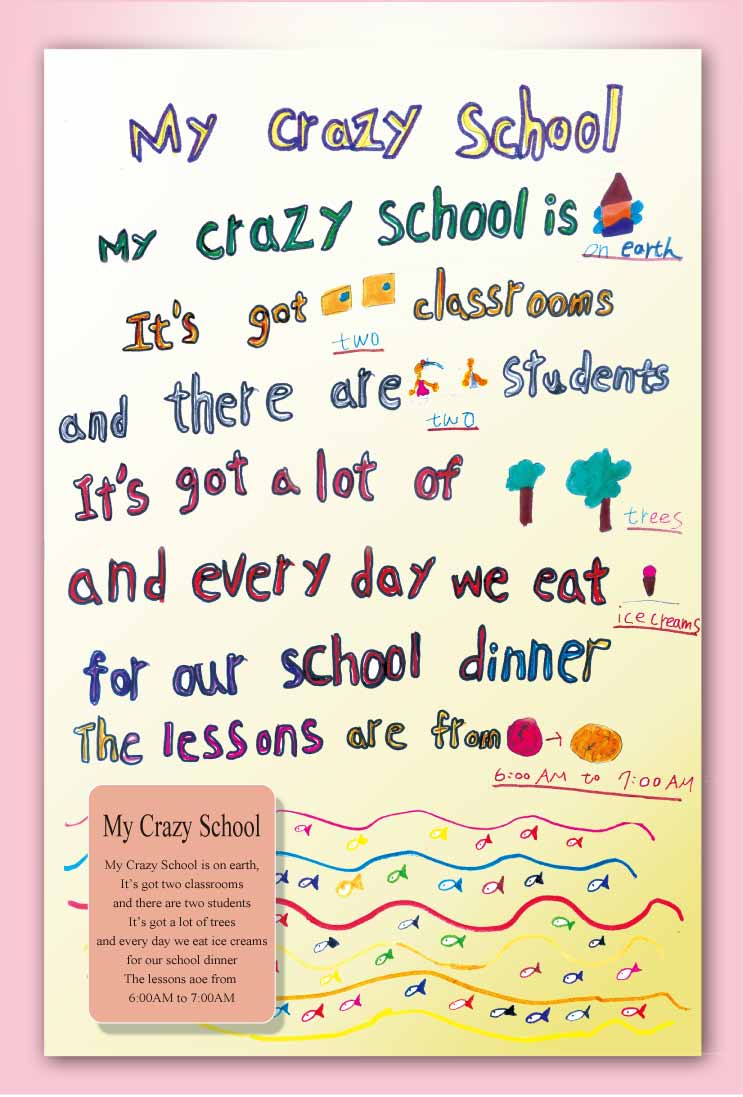 My crazy School
My crazy school is
on earth
It's got classrooms
two
and there are students
two
It's got a lot of
trees
and every day we eat
ice creams
for our school dinner
The lessons are from
6:00 AM to 7:00 AM
My Crazy School
My Crazy School is on earth,
It's got two classrooms
and there are two students
It's got a lot of trees
and every day we eat ice creams
for our school dinner
The lessons aoe from
6:00AM to 7:00AM